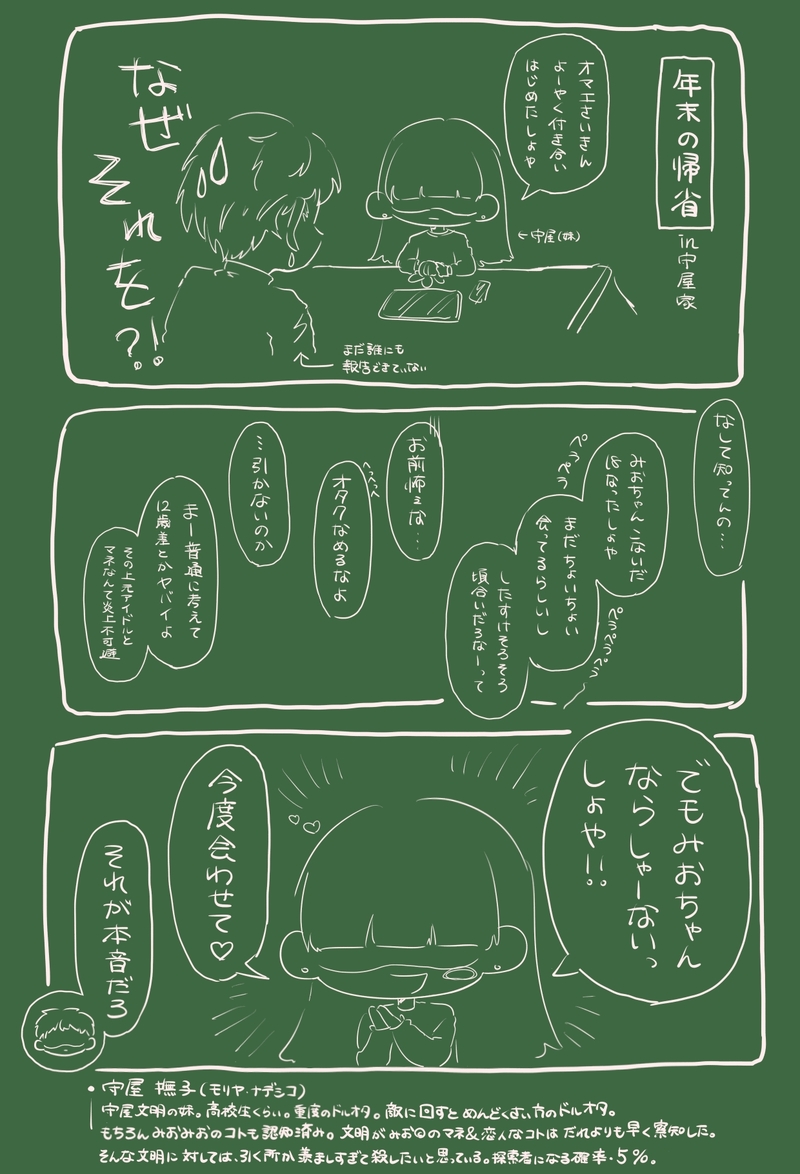 年末の帰省
in守屋家
オマエさいきん
よーやく付き合い
はじめたしょや
←守屋(妹)
なぜ
それを?!
まだ誰にも
報告できていない
なして知ってんの…
みおちゃんこないだ
になったしょや
ペラペラ
まだちょいちょい
会ってるらしいし
ペラペラペラ
したすけそろそろ
頃合いだろなーって
お前怖えな…
へっへっへ
オタクなめるなよ
…引かないのか
まー普通に考えて
12歳差とかヤバイよ
その上元アイドルと
マネなんて炎上不可避
でもみおちゃん
ならしゃーないっ
しょや!!
今度会わせて♡
それが本音だろ
・守屋 撫子(モリヤ・ナデシコ)
守屋文明の妹。高校生くらい。重度のドルオタ。敵に回すとめんどくさい方のドルオタ。
もちろんみおみおのコトも認知済み。文明がみおのマネ&恋人なコトはだれよりも早く察知した。
そんな文明に対しては、引く所か羨ましすぎて殺したいと思っている。探索者になる確率・5%。